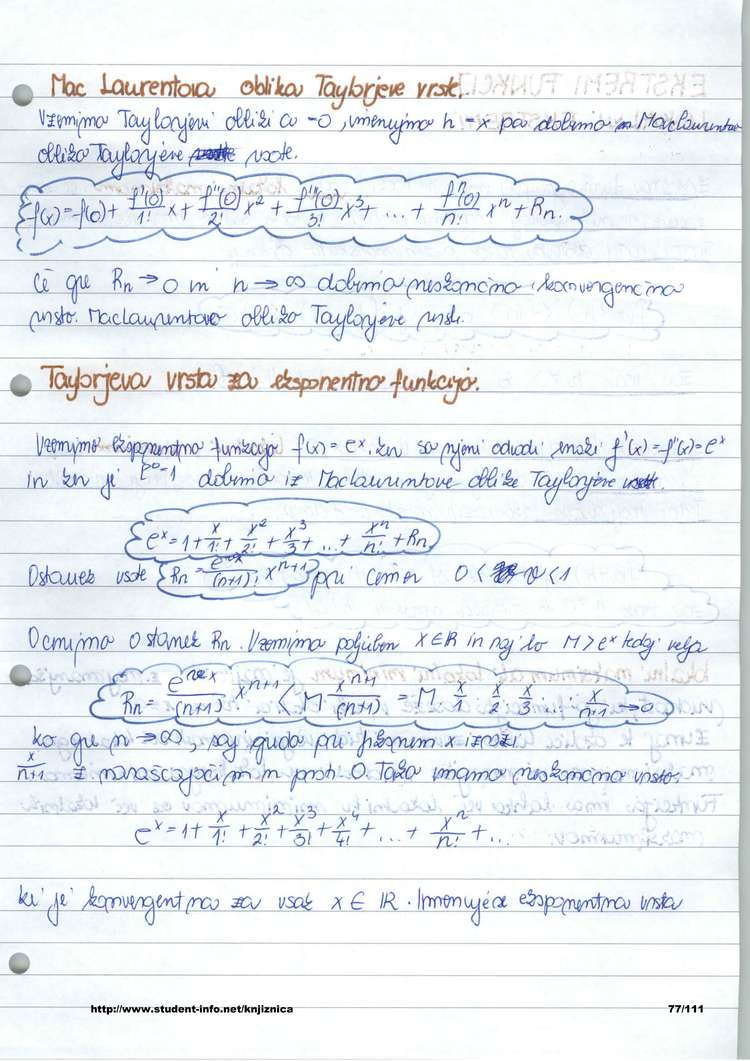 Mac Laurentova oblika Taylorjeve vrste.
Vzemimo Taylorjevi obliki a = 0, imenujmo h = x pa dobimo Maclaurentovo
obliko Taylorjeve vsote.
f(x) = f(0) + f'(0)/1! x + f''(0)/2! x² + f'''(0)/3! x³ + ... + fⁿ(0)/n! xⁿ + Rn.
Če gre Rn → 0 in n → ∞ dobimo neskončno konvergenčno
vrsto. Maclaurentovo obliko Taylorjeve vrste.
Taylorjeva vrsta za eksponentno funkcijo.
Vzemimo eksponentno funkcijo f(x) = eˣ. ker so njeni odvodi enaki f'(x) = f''(x) = eˣ
in ker je e⁰ = 1 dobimo iz Maclaurintove oblike Taylorjeve vsote.
eˣ = 1 + x/1! + x²/2! + x³/3 + ... + xⁿ/n! + Rn
Ostanek vsote Rn = /(n+1)! xⁿ⁺¹ pri čemer 0 < < 1
Ocenimo ostanek Rn. Vzemimo poljuben x ∈ R in naj bo M > eˣ tedaj velja
Rn = /(n+1) · xⁿ⁺¹ < M xⁿ⁺¹/(n+1) = M · x/1 · x/2 · x/3 ... · x/n+1 → 0
ko gre n → ∞, saj gredo pri fiksnem x izrazi
x/n+1 z naraščajočim n proti 0. Tako imamo neskončno vrsto:
eˣ = 1 + x/1! + x²/2! + x³/3! + x⁴/4! + ... + xⁿ/n! + ...
ki je konvergentna za vsak x ∈ IR. Imenuje se eksponentna vrsta
http://www.student-info.net/knjiznica 77/111